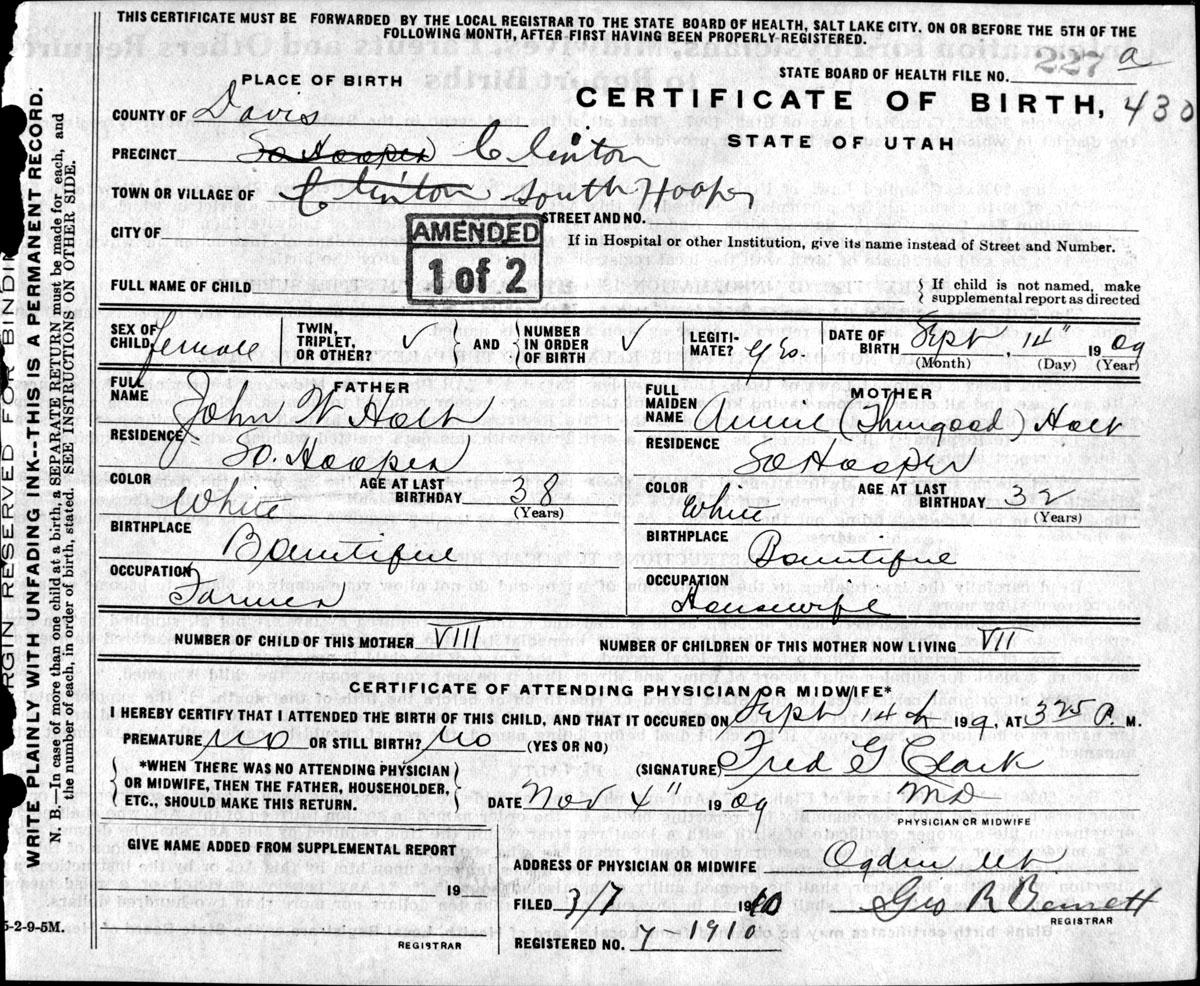 THIS CERTIFICATE MUST BE FORWARDED BY THE LOCAL REGISTRAR TO THE STATE BOARD OF HEALTH, SALT LAKE CITY. ON OR BEFORE THE 5TH OF THE
FOLLOWING MONTH, AFTER FIRST HAVING BEEN PROPERLY REGISTERED.
STATE BOARD OF HEALTH FILE NO. 227 a
PLACE OF BIRTH
CERTIFICATE OF BIRTH, 430
STATE OF UTAH
COUNTY OF Davis
PRECINCT So Hooper Clinton
TOWN OR VILLAGE OF Clinton South Hooper
STREET AND NO.
CITY OF
AMENDED
1 of 2
If in Hospital or other Institution, give its name instead of Street and Number.
FULL NAME OF CHILD
If child is not named, make
supplemental report as directed
SEX OF CHILD female
TWIN, TRIPLET, OR OTHER? ✓
AND NUMBER IN ORDER OF BIRTH ✓
LEGITIMATE? yes
DATE OF BIRTH Sept, 14" 1909
(Month) (Day) (Year)
FATHER
FULL NAME John W Holt
RESIDENCE So. Hooper
COLOR White
AGE AT LAST BIRTHDAY 38
(Years)
BIRTHPLACE Bountiful
OCCUPATION Farmer
MOTHER
FULL MAIDEN NAME Annie (Thurgood) Holt
RESIDENCE So Hooper
COLOR White
AGE AT LAST BIRTHDAY 32
(Years)
BIRTHPLACE Bountiful
OCCUPATION Housewife
NUMBER OF CHILD OF THIS MOTHER VIII
NUMBER OF CHILDREN OF THIS MOTHER NOW LIVING VII
CERTIFICATE OF ATTENDING PHYSICIAN OR MIDWIFE*
I HEREBY CERTIFY THAT I ATTENDED THE BIRTH OF THIS CHILD, AND THAT IT OCCURED ON Sept 14th 1909, AT 3 25 P. M.
PREMATURE no OR STILL BIRTH? no (YES OR NO)
*WHEN THERE WAS NO ATTENDING PHYSICIAN
OR MIDWIFE, THEN THE FATHER, HOUSEHOLDER,
ETC., SHOULD MAKE THIS RETURN.
(SIGNATURE) Fred G Clark
DATE Nov 4" 1909
MD
PHYSICIAN OR MIDWIFE
GIVE NAME ADDED FROM SUPPLEMENTAL REPORT
19
REGISTRAR
ADDRESS OF PHYSICIAN OR MIDWIFE Ogden Ut.
FILED 3/7 1910
Geo R Bennett
REGISTRAR
REGISTERED NO. 7 1910
5-2-9-5M.
MARGIN RESERVED FOR BINDIN
WRITE PLAINLY WITH UNFADING INK--THIS IS A PERMANENT RECORD.
N. B.—In case of more than one child at a birth, a SEPARATE RETURN must be made for each, and
the number of each, in order of birth, stated. SEE INSTRUCTIONS ON OTHER SIDE.